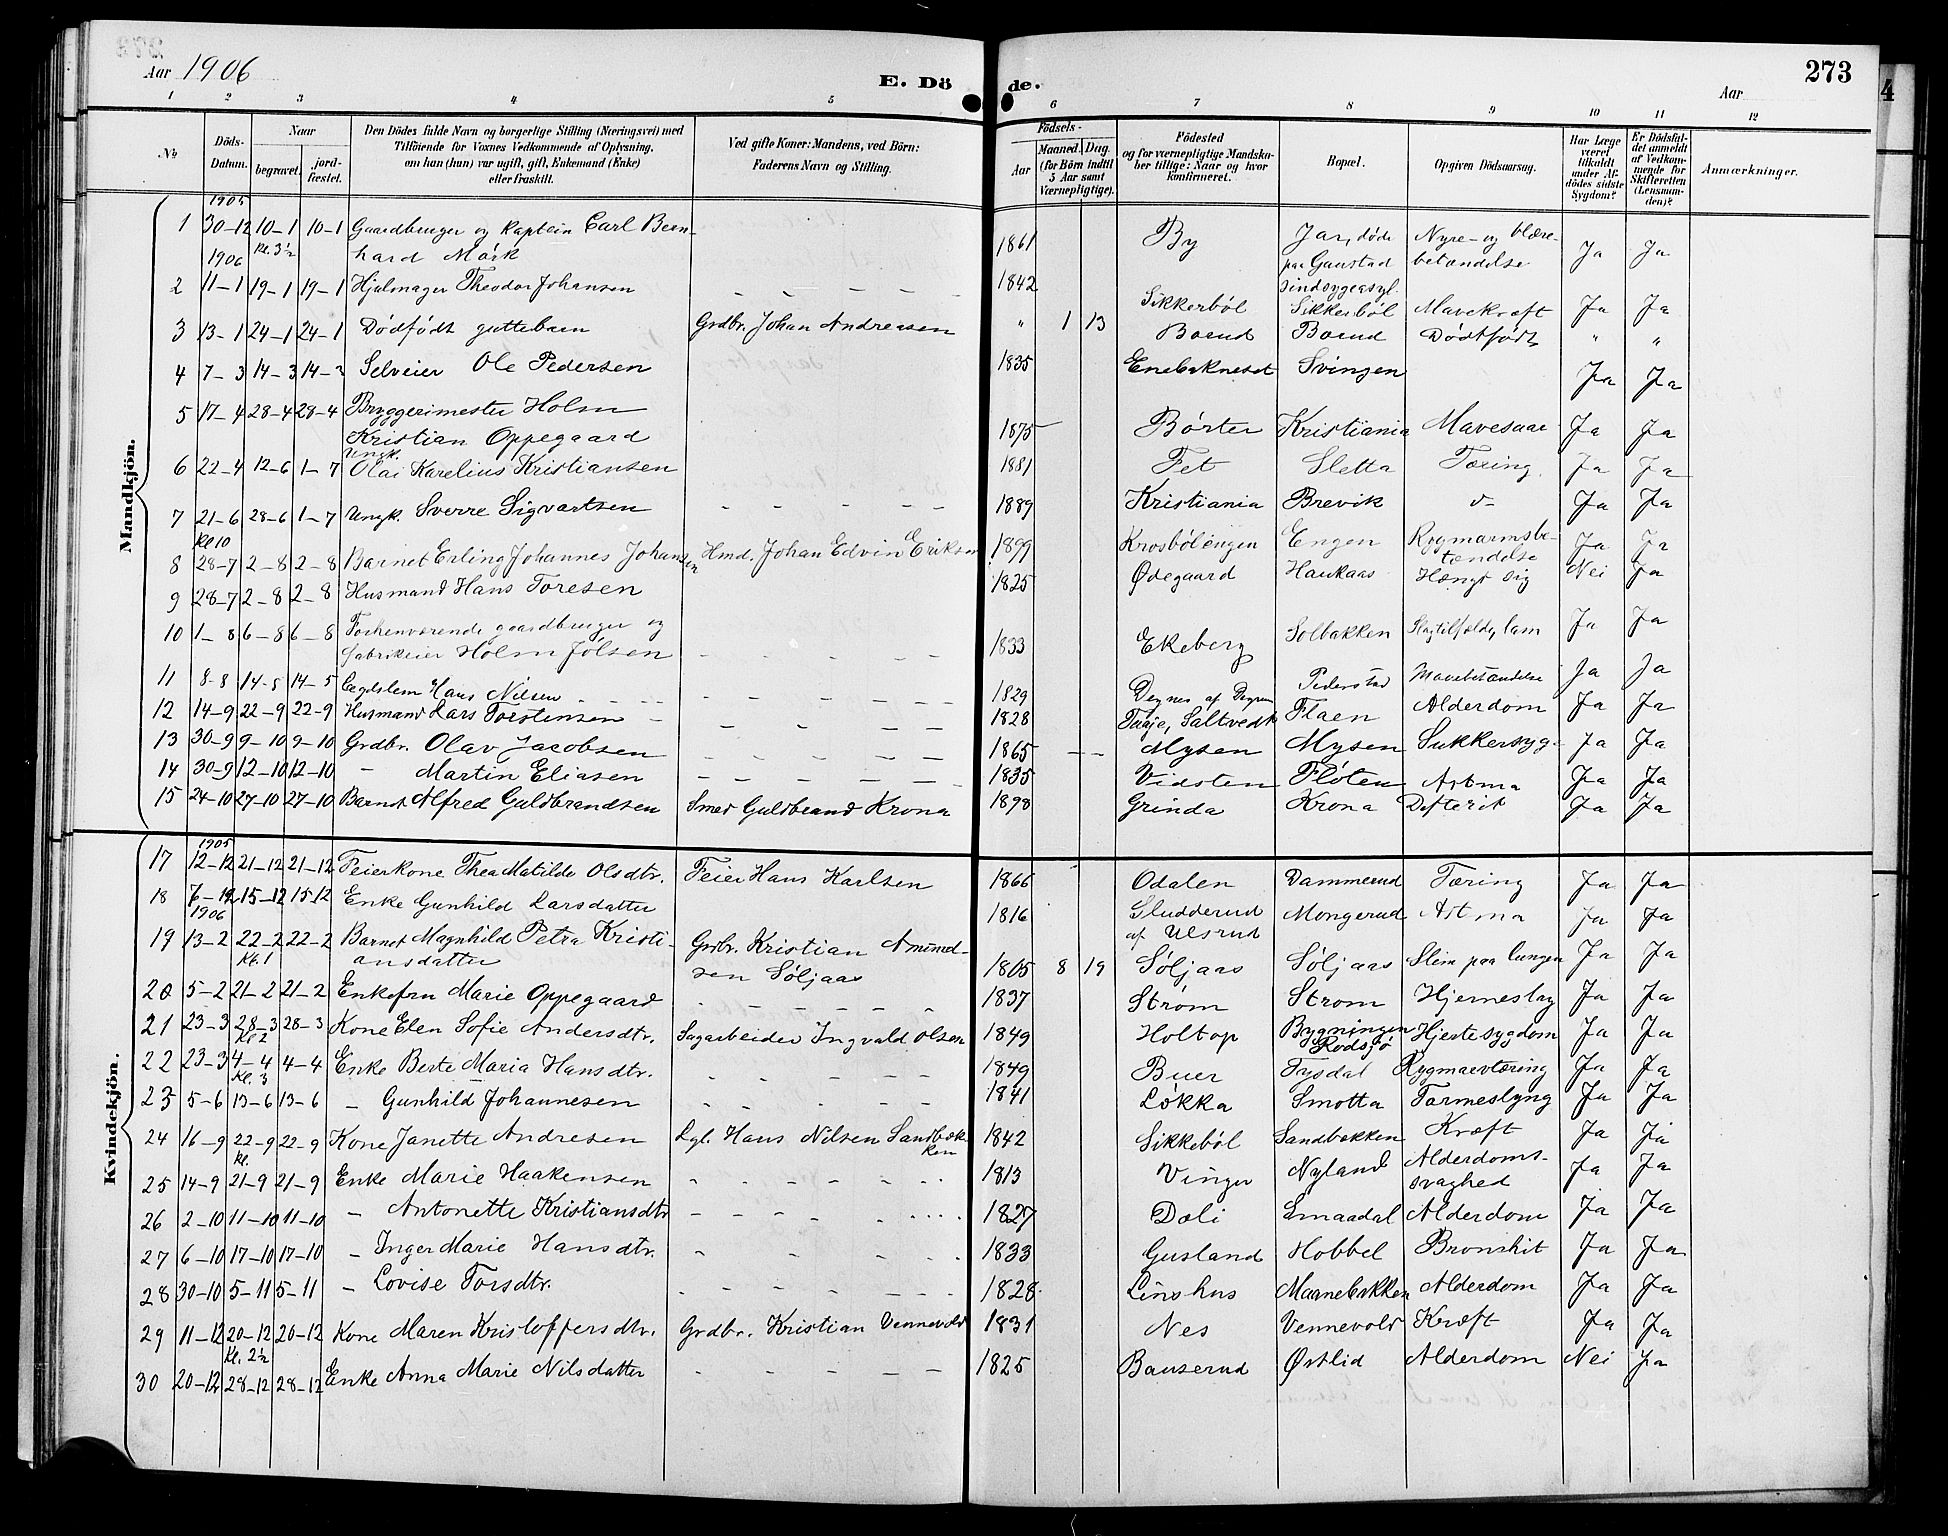 Aar 1906
E. Dö de.
Aar
273
4
1 2 3 4 5 6 7 8 9 10 11 12
No.
Döds-Datum.
Naar
begravet.
jord-fæstet.
Den Dödes fulde Navn og borgerlige Stilling (Næringsvei) med
Tilföiende for Voxnes Vedkommende af Oplysning,
om han (hun) var ugift, gift, Enkemand (Enke)
eller fraskilt.
Ved gifte Koner: Mandens, ved Börn:
Faderens Navn og Stilling.
Födsels-
Aar
Maaned. Dag.
(for Börn indtil
5 Aar samt
Værnepligtige).
Födested
og for værnepligtige Mandska-
ber tillige: Naar og hvor
konfirmeret.
Bopæl.
Opgiven Dödsaarsag.
Har Læge
været
tilkaldt
under Af-
dödes sidste
Sygdom?
Er Dödsfal-
det anmeldt
af Vedkom-
mende for
Skifteretten
(Lensman-
den)?
Anmærkninger.
Mandkjön.
1905
1 30-12 10-1 10-1 Gaardbruger og Kaptein Carl Bern- 1861 By Jar, döde Nyre- og blære- Ja Ja
1906 Kl. 3½ hard Mörk paa Gaustad betændelse
sindsygeasyl.
2 11-1 19-1 19-1 Hjulmager Theodor Johansen 1842 Sikkerböl Sikkerböl Mavekræft Ja Ja
3 13-1 24-1 24-1 Dödfödt guttebarn Grdbr. Johan Andreasen " 1 13 Borud Borud Dödfödt " "
4 7-3 14-3 14-3 Selveier Ole Pedersen 1835 Enebakneset Svingen Ja Ja
5 17-4 28-4 28-4 Bryggerimester Holm
Kristian Oppegaard 1875 Börter Kristiania Mavesaar Ja Ja
Ungk.
6 22-4 12-6 1-7 Olai Karelius Kristiansen 1881 Fet Sletta Tæring Ja Ja
7 21-6 28-6 1-7 Ungk. Sverre Sigvartsen 1889 Kristiania Brevik Ja Ja
Kl 10
8 28-7 2-8 2-8 Barnet Erling Johannes Johansen Hmd. Johan Edvin Eriksen 1899 Krosbölengen Engen Rygmarmsbe-
tændelse Ja Ja
9 28-7 2-8 2-8 Husmand Hans Toresen 1825 Ødegaard Haukaas Hængt sig Nei Ja
10 1-8 6-8 6-8 Forhenværende gaardbruger og
fabrikeier Holm Jölsen 1833 Ekeberg Solbakken Slagtilfælde, lam Ja Ja
11 8-8 14-5 14-5 Lægdslem Hans Nilsen 1829 Pederstad Mavebetændelse Ja Ja
12 14-9 22-9 22-9 Husmand Lars Torstensen 1828 Flaen Alderdom Ja Ja
13 30-9 9-10 9-10 Grdbr. Olav Jacobsen 1865 Mysen Mysen Sukkersyge Ja Ja
14 30-9 12-10 12-10 - Martin Eliasen 1835 Vidsten Flöten Astma Ja Ja
15 24-10 27-10 27-10 Barnet Alfred Guldbrandsen Smed Guldbrand Krona 1898 Grinda Krona Difterit Ja Ja
Kvindekjön.
1905
17 12-12 21-12 21-12 Feierkone Thea Matilde Olsdtr. Feier Hans Karlsen 1866 Odalen Dammerud Tæring Ja Ja
18 7-12 15-12 15-12 Enke Gunhild Larsdatter 1816 Sludderud
af Ulsrud Mongerud Astma Ja Ja
1906
19 13-2 22-2 22-2 Barnet Magnhild Petra Kristi- Grdbr. Kristian Amund-
Kl. 1 ansdatter sen Söljaas 1805 8 19 Söljaas Söljaas Slim paa lungen Ja Ja
20 5-2 21-2 21-2 Enkefru Marie Oppegaard 1837 Ström Strom Hjerneslag Ja Ja
21 23-3 28-3 28-3 Kone Elen Sofie Andersdtr. Sagarbeider Ingvald Olsen 1849 Holtop Bygningen
Rodsjö Hjertesygdom Ja Ja
Kl 2
22 23-3 4-4 4-4 Enke Berte Maria Hansdtr. 1849 Buer Tysdal Rygmarvtæring Ja Ja
Kl. 3
23 5-6 13-6 13-6 - Gunhild Johannesen 1841 Lökka Smotta Tarmeslyng Ja Ja
24 16-9 22-9 22-9 Kone Janette Andresen Lgl. Hans Nilsen Sandbæk-
ken 1842 Sikkeböl Sandbækken Kræft Ja Ja
Kl.
25 14-9 21-9 21-9 Enke Marie Haakensen 1813 Vinger Nyland Alderdoms-
svaghed Ja Ja
26 2-10 11-10 11-10 - Antonette Kristiansdtr 1827 Dæli Smaadal Alderdom Ja Ja
27 6-10 17-10 17-10 - Inger Marie Hansdtr. 1833 Gusland Hobbel Bronshit Ja Ja
28 30-10 5-11 5-11 - Lovise Torsdtr. 1828 Linshus Maanebakken Alderdom Ja Ja
29 11-12 20-12 20-12 Kone Maren Kristoffersdtr. Grdbr. Kristian Vennevold 1831 Nes Vennevold Kræft Ja Ja
Kl. 2½
30 20-12 28-12 28-12 Enke Anna Marie Nilsdatter 1825 Bauserud Østlid Alderdom Nei Ja